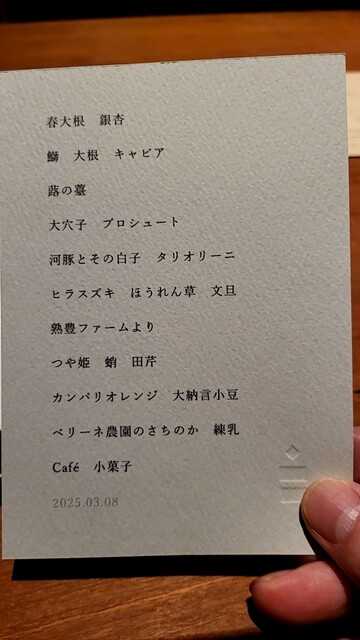 春大根　銀杏
鰤　大根　キャビア
蕗の薹
大穴子　プロシュート
河豚とその白子　タリオリーニ
ヒラスズキ　ほうれん草　文旦
熟豊ファームより
つや姫　蛸　田芹
カンパリオレンジ　大納言小豆
ベリーネ農園のさちのか　練乳
Café　小菓子
2025.03.08